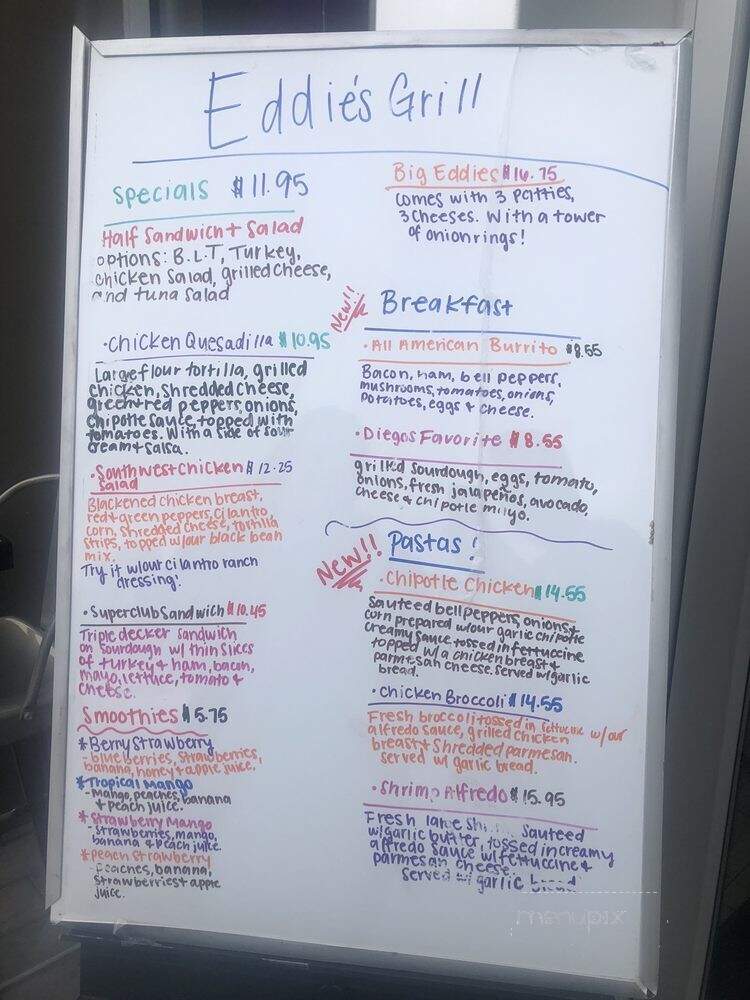 Eddie's Grill
Specials $11.95
Half Sandwich + Salad
options: B.L.T, Turkey,
chicken Salad, grilled cheese,
and tuna salad
•Chicken Quesadilla $10.95
Large flour tortilla, grilled
chicken, shredded cheese,
green+red peppers, onions,
chipotle sauce, topped with
tomatoes. With a side of sour
cream + salsa.
•Southwest Chicken $12.25
Salad
Blackened chicken breast,
red+green peppers, cilantro,
corn, shredded cheese, tortilla
strips, topped w/our black bean
mix.
Try it w/our cilantro ranch
dressing!
•Superclub Sandwich $10.45
Triple decker sandwich
on sourdough w/ thin slices
of turkey + ham, bacon,
mayo, lettuce, tomato +
cheese.
Smoothies $5.75
*Berry Strawberry
- blueberries, strawberries,
banana, honey + apple juice.
*Tropical Mango
-Mango, peaches, banana
+ peach juice.
*Strawberry Mango
-strawberries, mango,
banana & peach juice.
*peach strawberry
-peaches, banana,
strawberries + apple
juice.
Big Eddies $14.75
comes with 3 patties,
3 cheeses. With a tower
of onion rings!
New!! Breakfast
•All American Burrito $8.55
Bacon, ham, bell peppers,
mushrooms, tomatoes, onions,
potatoes, eggs & cheese.
•Diegos Favorite $8.55
grilled sourdough, eggs, tomato,
onions, fresh jalapeños, avocado,
cheese & chipotle mayo.
New!! Pastas!
•Chipotle Chicken $14.55
Sauteed bell peppers, onions +
corn prepared w/our garlic chipotle
creamy sauce tossed in fettuccine
topped w/a chicken breast +
parmesan cheese. Served w/garlic
bread.
•Chicken Broccoli $14.55
Fresh broccoli tossed in fettucine w/our
alfredo sauce, grilled chicken
breast + shredded parmesan.
served w/ garlic bread.
•Shrimp Alfredo $15.95
Fresh Sauteed
w/garlic butter, tossed in creamy
alfredo sauce w/fettuccine +
parmesan cheese.
served w/ garlic bread
menupix